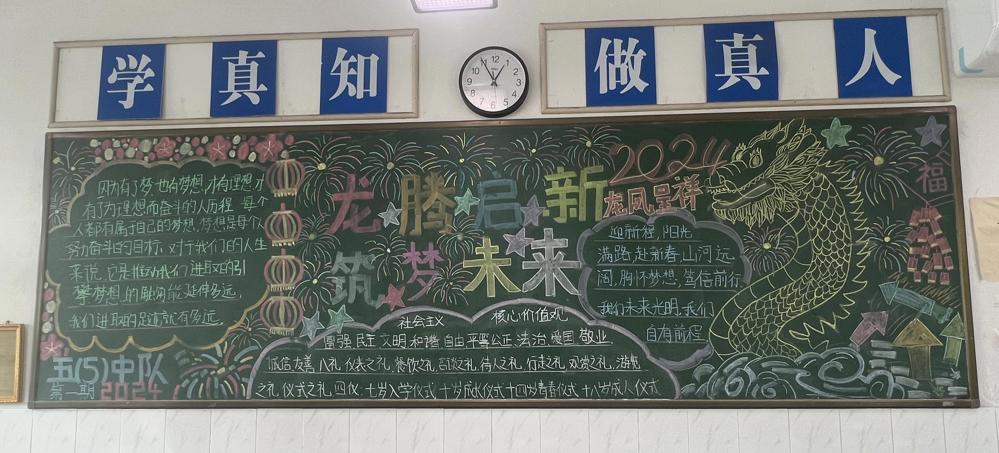 学 真 知
做 真 人
12 1 2 3 4 5 6 7 8 9 10 11
因为有了梦,也有梦想,才有理想,才
有了为理想而奋斗的人历程 每个
人都有属于自己的梦想,梦想是每个人
努力奋斗的目标,对于我们的人生
来说,它是推动我们进取的引
擎梦想的触角能延伸多远,
我们进取的足迹就有多远
五(5)中队
第一期 2024
龙腾启新
筑梦未来
2024
龙凤呈祥
福
迎新程,阳光
满路,赴新春,山河远
阔,胸怀梦想,笃信前行
我们未来光明,我们
自有前程
社会主义 核心价值观
富强 民主 文明 和谐 自由 平等 公正 法治 爱国 敬业
诚信 友善 八礼 仪表之礼 餐饮之礼 言谈之礼 待人之礼 行走之礼 观赏之礼 游览
之礼 仪式之礼 四仪 七岁入学仪式 十岁成长仪式 十四岁青春仪式 十八岁成人仪式